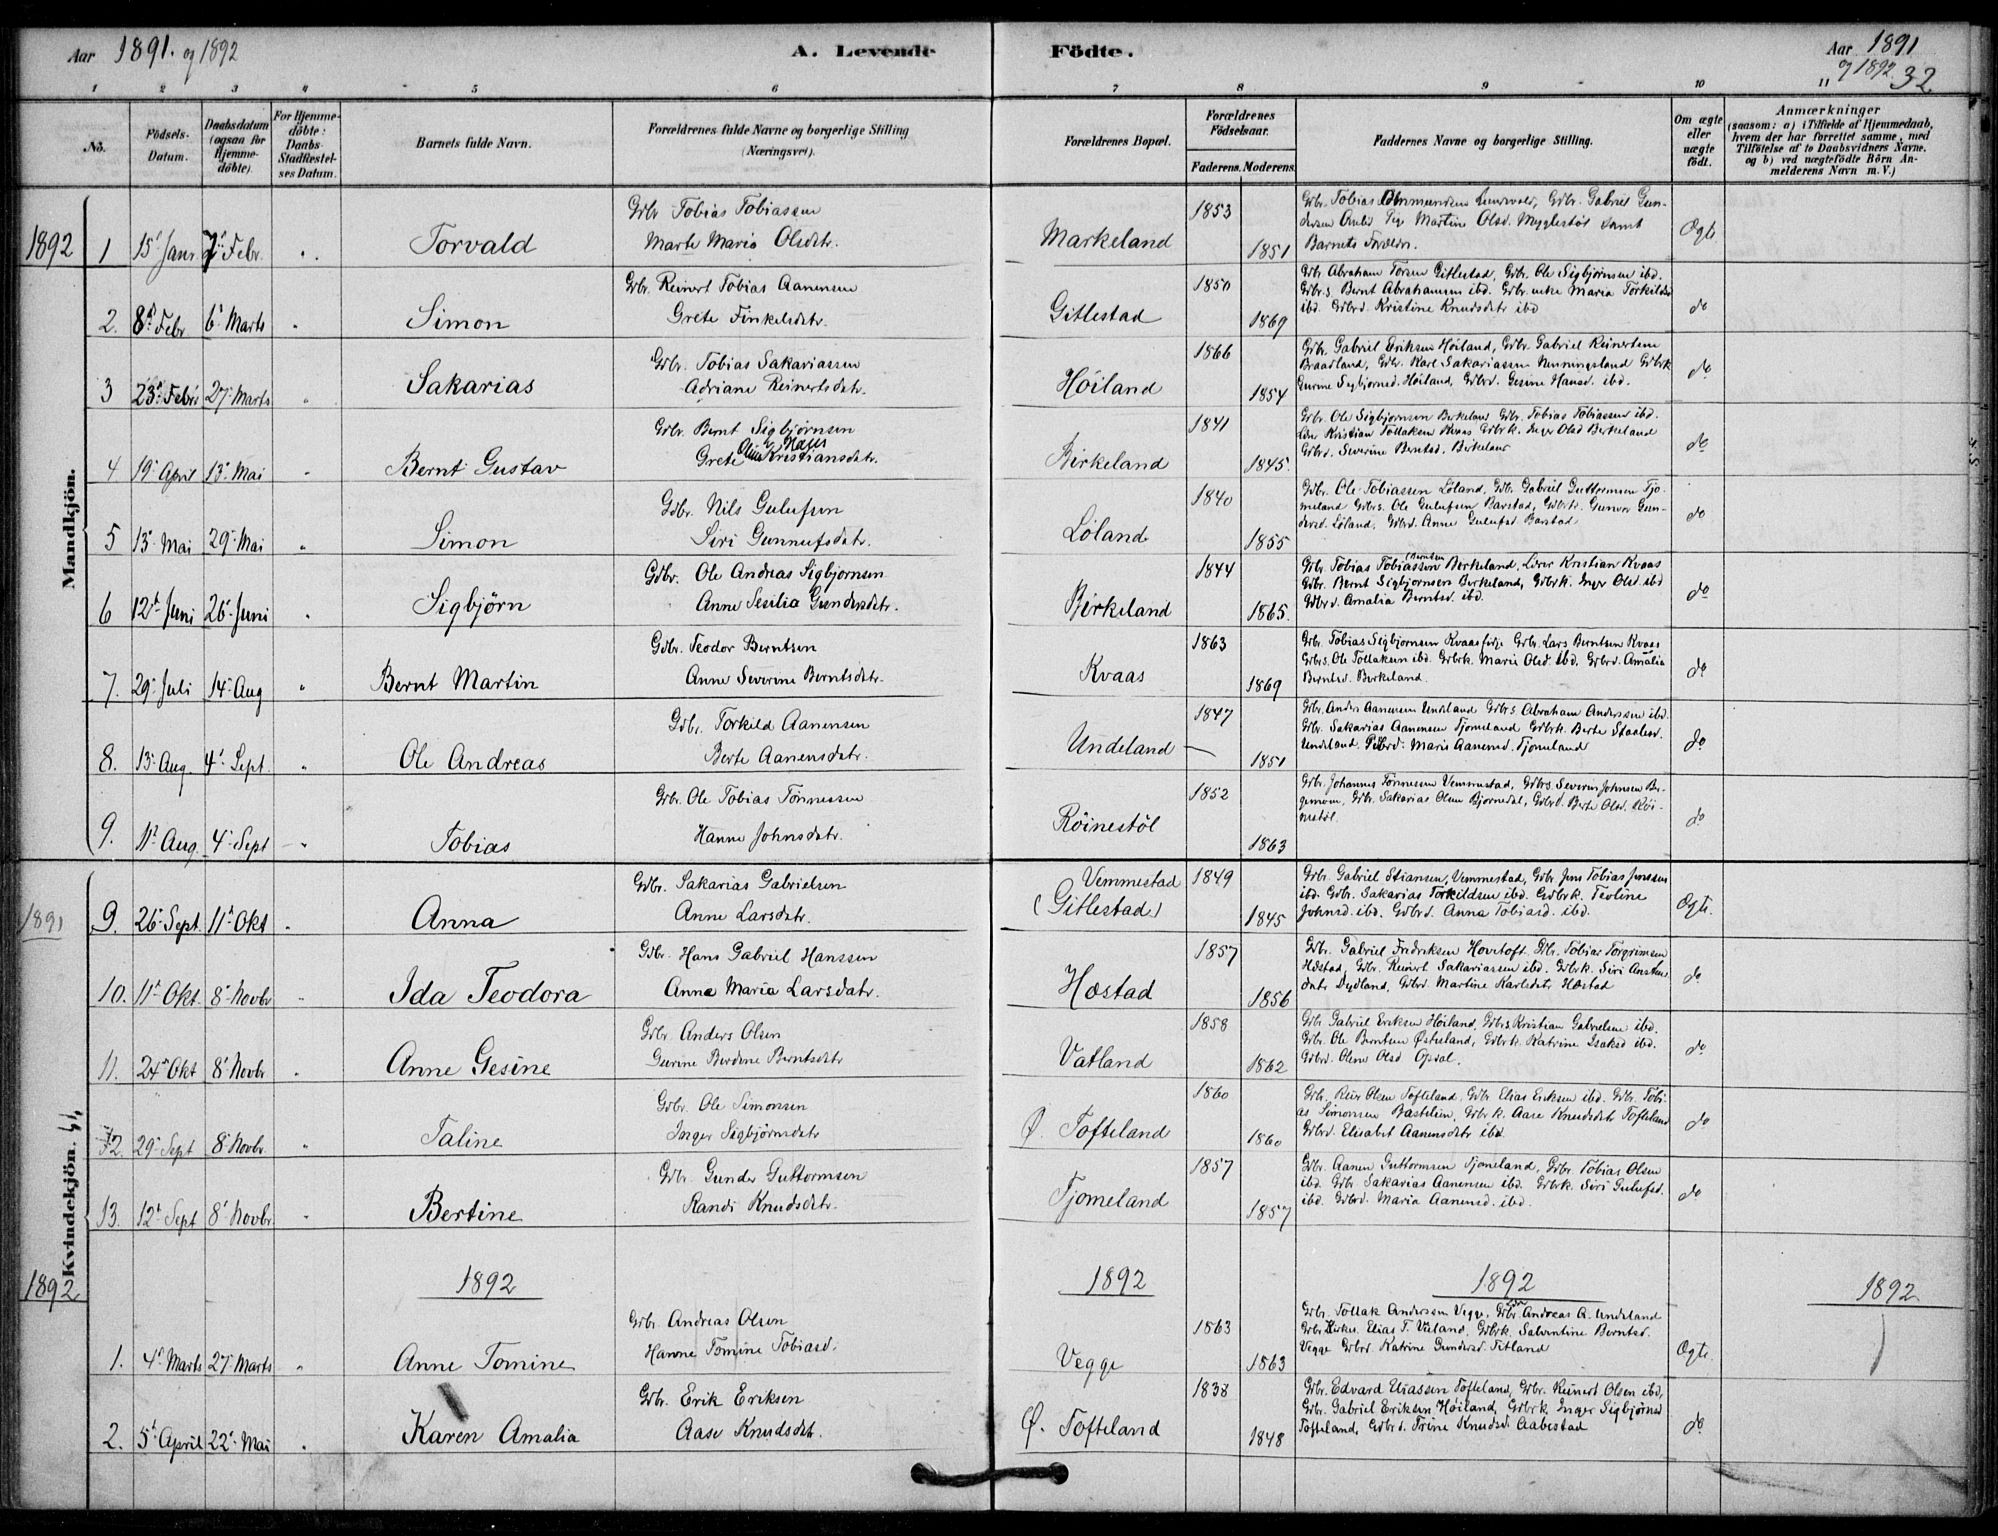 Aar 1891. og 1892
A. Levende Födte.
Aar 1891
og 1892 32
1 2 3 4 5 6 7 8 9 10 11
No.
Födsels-Datum.
Daabsdatum (ogsaa for Hjemme-döbte).
For Hjemme-döbte: Daabs-Stadfæstel-ses Datum.
Barnets fulde Navn.
Forældrenes fulde Navne og borgerlige Stilling (Næringsvei).
Forældrenes Bopæl.
Forældrenes Födselsaar.
Faderens. Moderens.
Faddernes Navne og borgerlige Stilling.
Om ægte eller uægte födt.
Anmærkninger (saasom: a) i Tilfælde af Hjemmedaab, hvem der har forrettet samme, med Tilföielse af to Daabsvidners Navne. og b) ved uægtefödte Börn An-melderens Navn m. V.)
Mandkjön.
1892 1 15 Janr. 7 Febr. " Torvald
Gbr. Tobias Tobiassen
Marte Maria Olsdtr.
Markeland 1853 1851
Gabriel Gun-
Martine Olsd. Mygglestöl samt
Barnets Forældre. Ægte
2. 8 Febr 6 Marts " Simon
Gbr. Reinert Tobias Aanensen
Grete Finkelsdtr.
Gitlestad 1850 1869
Gbr. Abraham Torsen Gitlestad, Gbr. Ole Sigbjørnsen ibd.
Gbr.s. Bernt Abrahamsen ibd. Gbr. enke Maria Torkilds
ibd. Gbrd. Kristine Knudsdtr ibd do
3 23 Febr 27 Marts " Sakarias
Gbr. Tobias Sakariassen
Adriane Reinertsdtr.
Höiland 1866 1854
Gbr. Gabriel Eriksen Höiland, Gbr. Gabriel Reinertsen
Braadland, Gbr. Karl Sakariassen Gbrk
Gurine Sigbjørnsd. Höiland, Gbrd. Gesine Hansd. ibd. do
4 19 April 13 Mai " Bernt Gustav
Gbr. Bernt Sigbjørnsen
Grete Kristiansdtr.
Birkeland 1841 1845.
Gbr. Ole Sigbjørnsen Birkeland Gbr. Tobias Tobiassen ibd.
Kristian Tollaksen Kvaas Gbrk. Inger Olsd Birkeland
Gbrd. Severine Berntsd. Birkeland do
5 13 Mai 29 Mai " Simon
Gbr. Nils Gulufsen
Siri Gunnufsdtr.
Löland 1840 1855
Gbr. Ole Tobiassen Löland, Gbr. Gabriel Guttormsen Tjo-
meland Gbrs. Ole Gulufsen Barstad, Gbrk. Gunvor Gun-
dersd. Löland, Gbrd. Anne Gulufsd Barstad do
6 12 Juni 26 Juni " Sigbjörn
Gbr. Ole Andreas Sigbjørnsen
Anne Sesilia Gundersdtr.
Birkeland 1844 1865.
Gbr. Tobias Tobiassen Birkeland, Lærer Kristian Kvaas
Gbr. Bernt Sigbjørnsen Birkeland, Gbrk. Inger Olsd ibd
Gbrd. Amalia Berntsd. ibd. do
7. 29 Juli 14 Aug " Bernt Martin
Gbr. Teodor Berntsen
Anne Severine Berntsdtr.
Kvaas 1863 1869
Gbr. Tobias Sigbjørnsen Gbr. Lars Berntsen Kvaas
Gbrs. Ole Tollaksen ibd. Gbrk. Marie Olsd. ibd. Gbrd. Amalia
Berntsd. Birkeland. do
8. 13 Aug. 4 Sept. " Ole Andreas
Gbr. Torkild Aanensen
Berte Aanensdtr.
Undeland 1847 1851
Gbr. Anders Aanensen Undeland Gbrs Abraham Anderssen ibd.
Gbr. Sakarias Aanensen Tjomeland Gbrk. Berte Staalesd.
Undeland Gbrd. Marie Aanensd. Tjomeland do
9. 11 Aug. 4 Sept " Tobias
Gbr. Ole Tobias Tönnessen
Hanne Johnsdtr.
Röinestöl 1852 1863
Gbr. Johannes Tönnessen Vemmestad, Gbrs. Severin Johnsen
Gbr. Sakarias Olsen Bjørnedal, Gbrd. Berte Olsd. Röi-
nestöl. do
Kvindekjön.
1891 9. 26 Sept. 11 Okt " Anna
Gbr. Sakarias Gabrielsen
Anne Larsdtr.
Vemmestad
(Gitlestad) 1849 1845
Gbr. Gabriel Stiansen, Vemmestad, Gbr Jens Tobias Jenssen
ibd. Gbr. Sakarias Torkildsen ibd. Gbrk. Teoline
Johnsd. ibd. Gbrd. Anna Tobiasd. ibd. Ægte.
10. 11 Okt. 8 Novbr " Ida Teodora
Gbr. Hans Gabriel Hanssen
Anna Maria Larsdatr.
Hæstad 1857 1856
Gbr. Gabriel Fredriksen Hovetoft. Gbr. Tobias Torgrimsen
Hæstad, Gbr. Reinert Sakariassen ibd. Gbrk. Siri
datr Dydland, Gbrd. Martine Karlsdtr, Hæstad do
11. 24 Okt 8 Novbr " Anne Gesine
Gbr. Anders Olsen
Gurine Berdine Berntsdtr
Vatland 1858 1862
Gbr. Gabriel Eriksen Höiland. Gbrs. Kristian Gabrielsen ibd.
Gbr. Ole Berntsen Gbrk. Katrine Isaksd ibd.
Gbrd. Olene Olsd Opsal. do
12. 29 Sept 8 Novbr. " Taline
Gbr. Ole Simonsen
Inger Sigbjørnsdtr
Ø. Tofteland 1860 1860
Gbr. Olsen Tofteland. Gbr Elias Eriksen ibd. Gbr. Tobi-
as Simonsen Gbrk. Aase Knudsdtr Tofteland
Gbrd. Elisabet Aanensdtr ibd do
13. 12 Sept 8 Novbr " Bertine
Gbr. Gunder Guttormsen
Randi Knudsdtr.
Tjomeland 1857 1857
Gbr. Aanen Guttormsen Tjomeland, Gbr. Tobias Olsen
ibd Gbr Sakarias Aanensen ibd. Gbrk. Siri Gulufsd.
ibd. Gbrd. Maria Aanensd. ibd. do
1892 1892 1892 1892 1892
1. 4 Marts 27 Marts " Anne Tomine
Gbr. Andreas Olsen
Hanne Tomine Tobiasd.
Vegge 1863 1863
Gbr. Tollak Andersen Vegge, Andreas A. Undeland
Elias T. Gbrk. Salventine Berntsd.
Vegge Gbrd. Katrine Gundersd. Titland Ægte.
2. 5 April 22 Mai " Karen Amalia
Gbr. Erik Eriksen
Aase Knudsdtr.
Ø. Tofteland 1838 1848
Gbr. Edvard Eliassen Tofteland, Gbr. Reinert Olsen ibd,
Gbr. Gabriel Eriksen Höiland, Gbrk Inger Sigbjørnsd
Tofteland, Gbrd. Trine Knudsd. Aabestad do